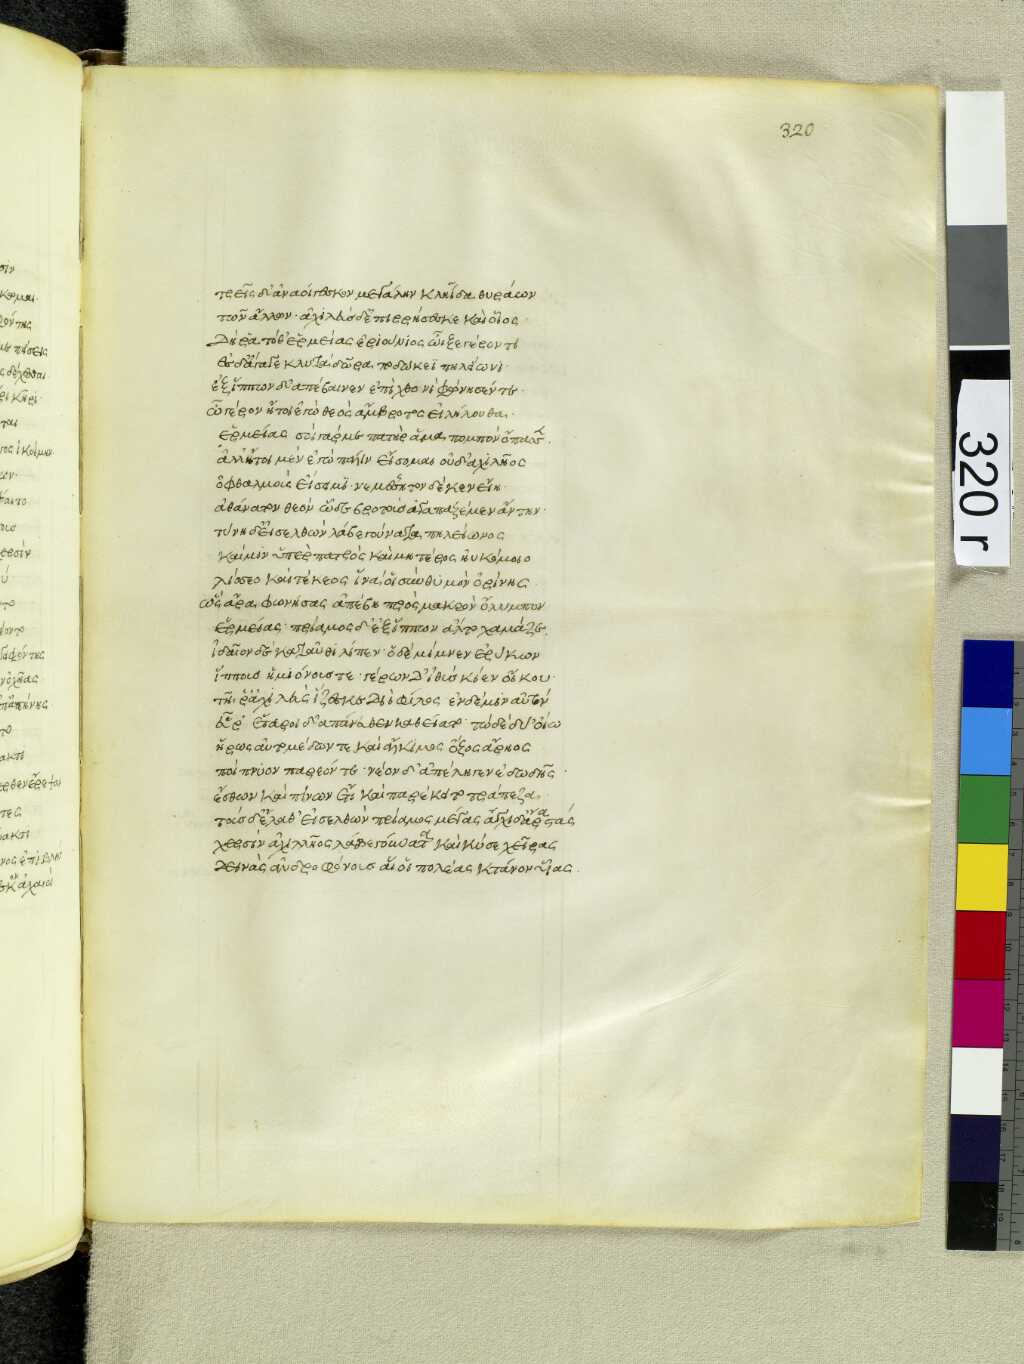 320
τρεῖς δ' ἀναοίγεσκον μεγάλην κληῖδα θυράων
τῶν ἄλλων· ἀχιλεὺς δ' ἐπιρρήσσεσκε καὶ οἶος·
δή ῥα τόθ' ἑρμείας ἐριούνιος ὦιξε γέροντι
ἐς δ' ἄγαγε κλυτὰ δῶρα ποδώκεϊ πηλείωνι·
ἐξ ἵππων δ' απέβαινεν ἐπὶ χθονὶ φώνησέν τε·
ὦ γέρον ἤτοι ἐγὼ θεὸς ἄμβροτος εἰλήλουθα·
ἑρμείας· σοὶ γάρ με πατὴρ ἅμα πομπὸν ὄπασσεν·
ἀλλ' ἤτοι μὲν ἐγὼ πάλιν εἴσομαι οὐδ' ἀχιλῆος
ὀφθαλμοὺς εἴσειμι· νεμεσητὸν δέ κεν εἴη·
ἀθάνατον θεὸν ὧδε βροτοὺς ἀγαπαζέμεν ἄντην·
τύνη δ' εἰσελθὼν λάβε γούνατα πηλείωνος
καί μιν ὑπὲρ πατρὸς καὶ μητέρος ἠυκόμοιο
λίσσεο καὶ τέκεος ἵνα οἱ σὺν θυμὸν ὀρίνηις
ὣς ἄρα φωνήσας ἀπέβη πρὸς μακρὸν ὄλυμπον
ἑρμείας· πρίαμος δ' ἐξ ἵππων ἆλτο χαμᾶζε·
ἰδαῖον δὲ καταῦθι λίπεν· ὁ δὲ μίμνεν ἐρύκων
ἵππους ἡμιόνους τε· γέρων δ' ἰθὺς κίεν οἴκου·
τῆι ῥ' ἀχιλεὺς ἵζεσκε διῒ φίλος· ἐν δέ μιν αὐτὸν
εὗρ'· ἕταροι δ' απάνευθεν καθείατο· τὼ δὲ δύ' οἴω
ἥρως αὐτομέδων τε καὶ ἄλκιμος ὄζος ἄρηος
ποίπνυον παρεόντε· νέον δ' ἀπέληγεν ἐδωδῆς·
ἔσθων καὶ πίνων ἔτι καὶ παρέκειτο τράπεζα·
τοὺς δ' ἔλαθ' εἰσελθὼν πρίαμος μέγας ἄγχι δ' ἄρα στάς
χερσὶν ἀχιλλῆος λάβε γούνατα καὶ κύσε χεῖρας
δεινὰς ἀνδροφόνους αἵ οἱ πολέας κτάνον υἷας·
320 r